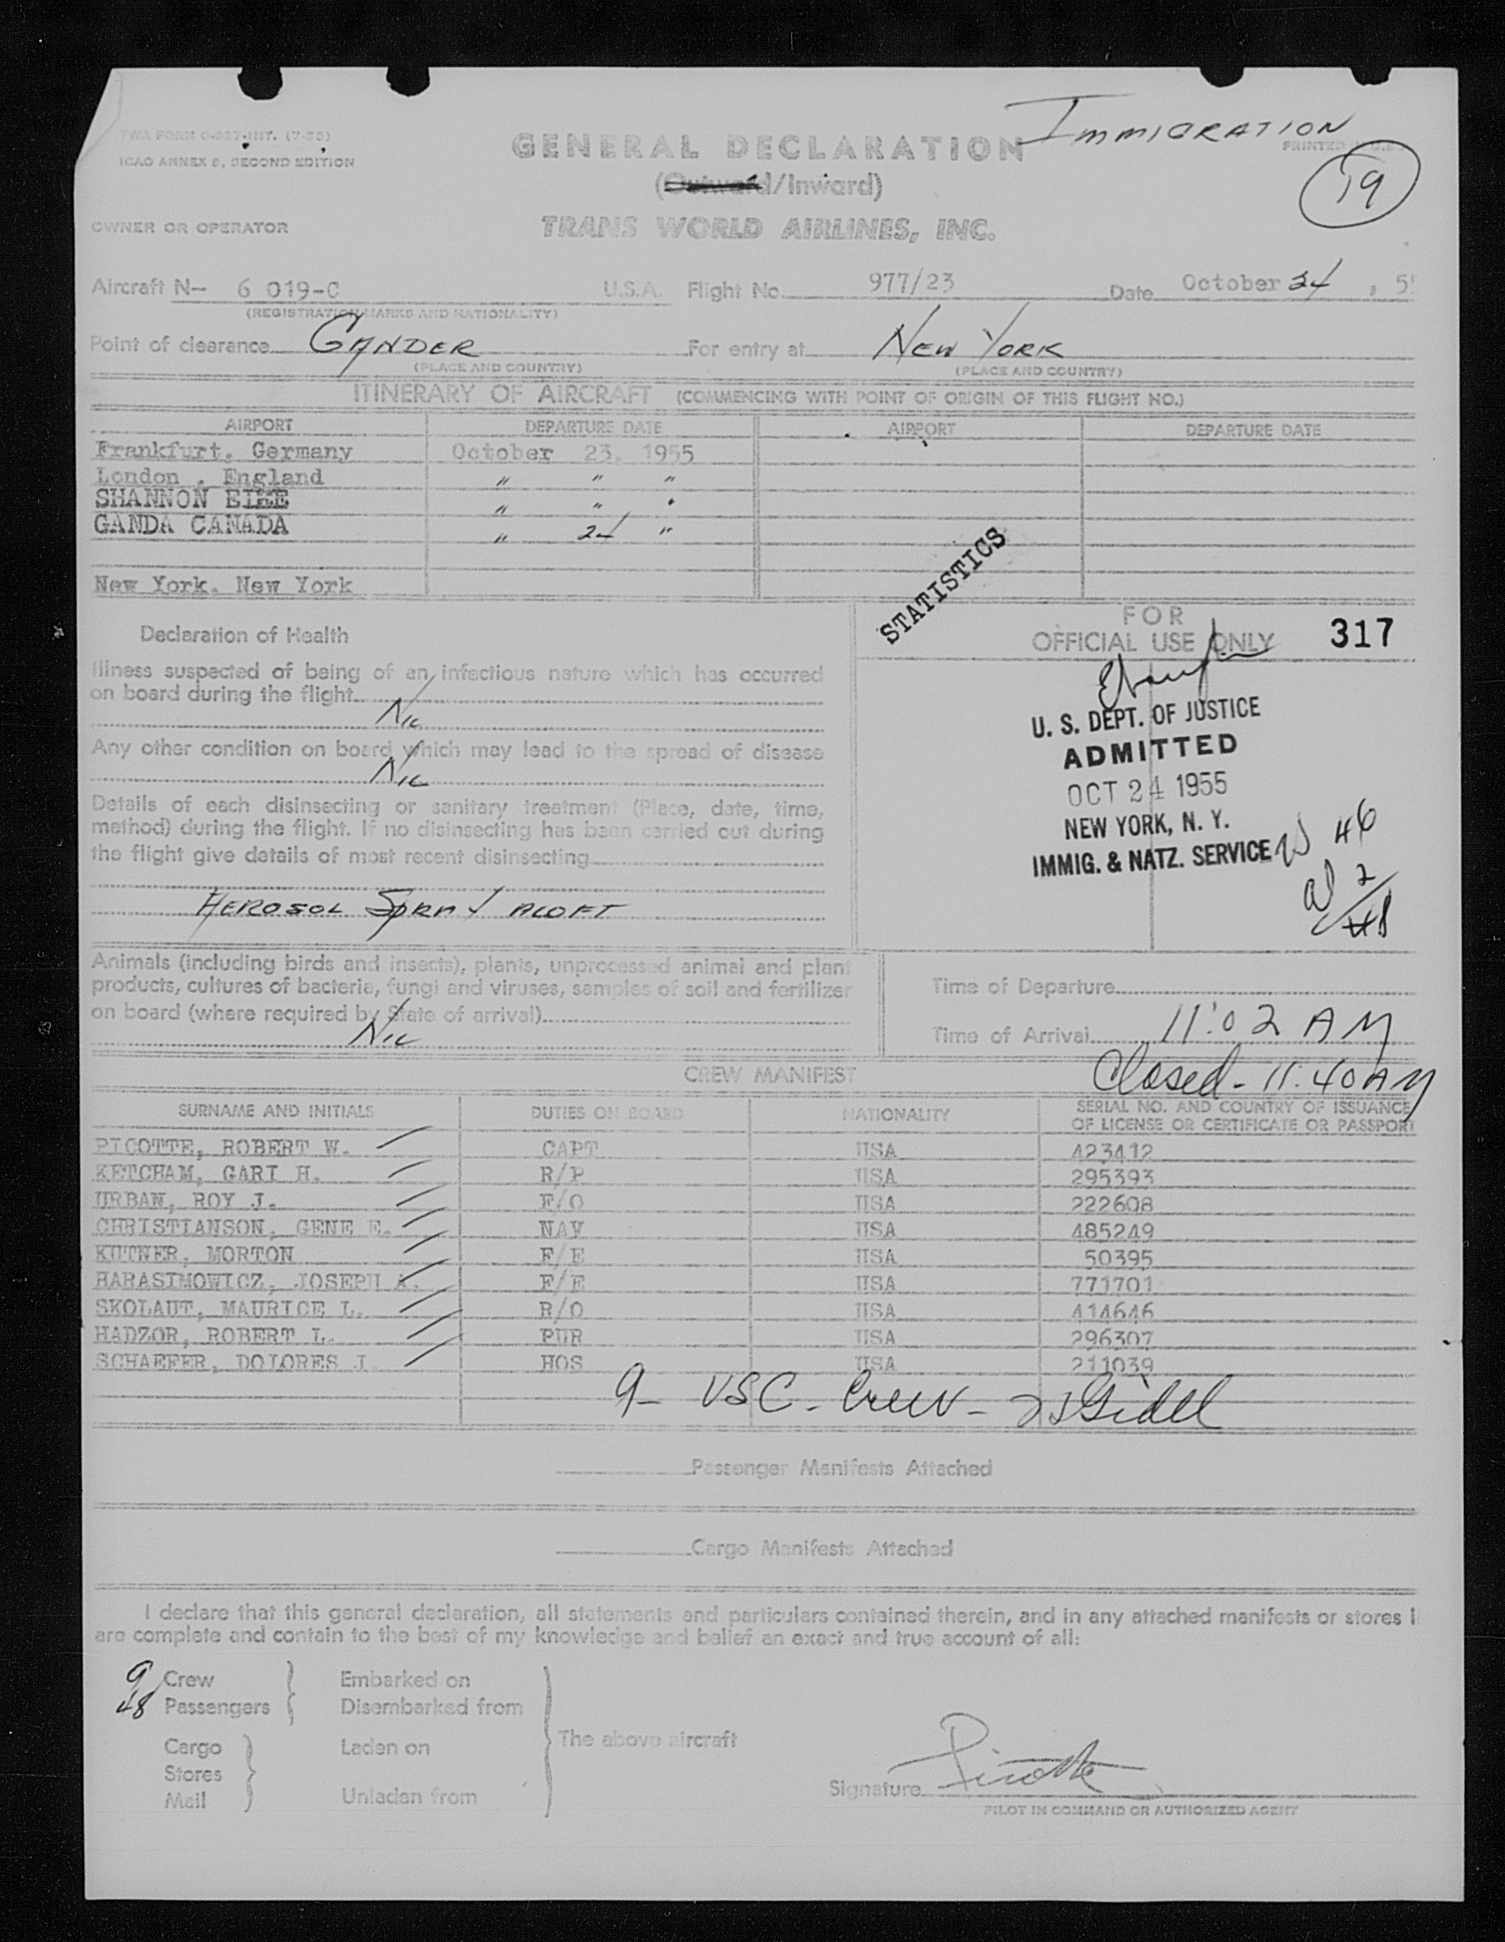 TWA FORM O-327-INT. (7-53)
ICAO ANNEX 9, SECOND EDITION
IMMIGRATION
PRINTED IN U.S.A.
GENERAL DECLARATION
(Outward/Inward)
19
OWNER OR OPERATOR
TRANS WORLD AIRLINES, INC.
Aircraft N- 6 019-C U.S.A. Flight No. 977/23 Date October 24, 55
(REGISTRATION MARKS AND NATIONALITY)
Point of clearance GANDER For entry at NEW YORK
(PLACE AND COUNTRY) (PLACE AND COUNTRY)
ITINERARY OF AIRCRAFT (COMMENCING WITH POINT OF ORIGIN OF THIS FLIGHT NO.)
AIRPORT DEPARTURE DATE AIRPORT DEPARTURE DATE
Frankfurt, Germany October 23, 1955
London, England " " "
SHANNON EIRE " " "
GANDA CANADA " 24 "
New York, New York
STATISTICS
FOR
OFFICIAL USE ONLY 317
Declaration of Health
Illness suspected of being of an infectious nature which has occurred
on board during the flight
NIL
Any other condition on board which may lead to the spread of disease
NIL
Details of each disinsecting or sanitary treatment (Place, date, time,
method) during the flight. If no disinsecting has been carried out during
the flight give details of most recent disinsecting
AEROSOL SPRAY ALOFT
U. S. DEPT. OF JUSTICE
ADMITTED
OCT 24 1955
NEW YORK, N. Y.
IMMIG. & NATZ. SERVICE
46
2
48
Animals (including birds and insects), plants, unprocessed animal and plant
products, cultures of bacteria, fungi and viruses, samples of soil and fertilizer
on board (where required by State of arrival)
NIL
Time of Departure
Time of Arrival 11:02 AM
Closed - 11:40 AM
CREW MANIFEST
SURNAME AND INITIALS DUTIES ON BOARD NATIONALITY SERIAL NO. AND COUNTRY OF ISSUANCE
OF LICENSE OR CERTIFICATE OR PASSPORT
PICOTTE, ROBERT W. CAPT USA 423412
KETCHAM, GARI H. R/P USA 295393
URBAN, ROY J. F/O USA 222608
CHRISTIANSON, GENE E. NAV USA 485249
KUTNER, MORTON F/E USA 50395
HARASIMOWICZ, JOSEPH A. F/E USA 771701
SKOLAUT, MAURICE L. R/O USA 414646
HADZOR, ROBERT L. PUR USA 296307
SCHAEFER, DOLORES J. HOS USA 211039
9 - USC - Crew -
Passenger Manifests Attached
Cargo Manifests Attached
I declare that this general declaration, all statements and particulars contained therein, and in any attached manifests or stores l
are complete and contain to the best of my knowledge and belief an exact and true account of all:
9 Crew Embarked on
48 Passengers Disembarked from
The above aircraft
Cargo Laden on
Stores
Mail Unladen from
Signature Picotte
PILOT IN COMMAND OR AUTHORIZED AGENT